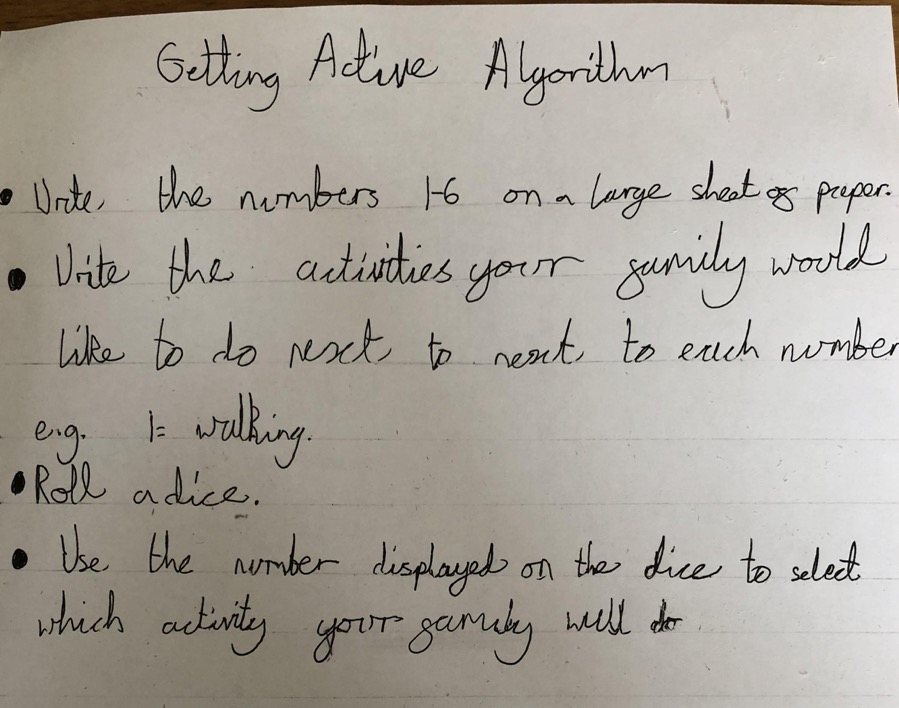 Getting Active Algorithm
• Write the numbers 1-6 on a large sheet of paper.
• Write the activities your family would
like to do next to next to each number
e.g. 1= walking.
• Roll a dice.
• Use the number displayed on the dice to select
which activity your family will do